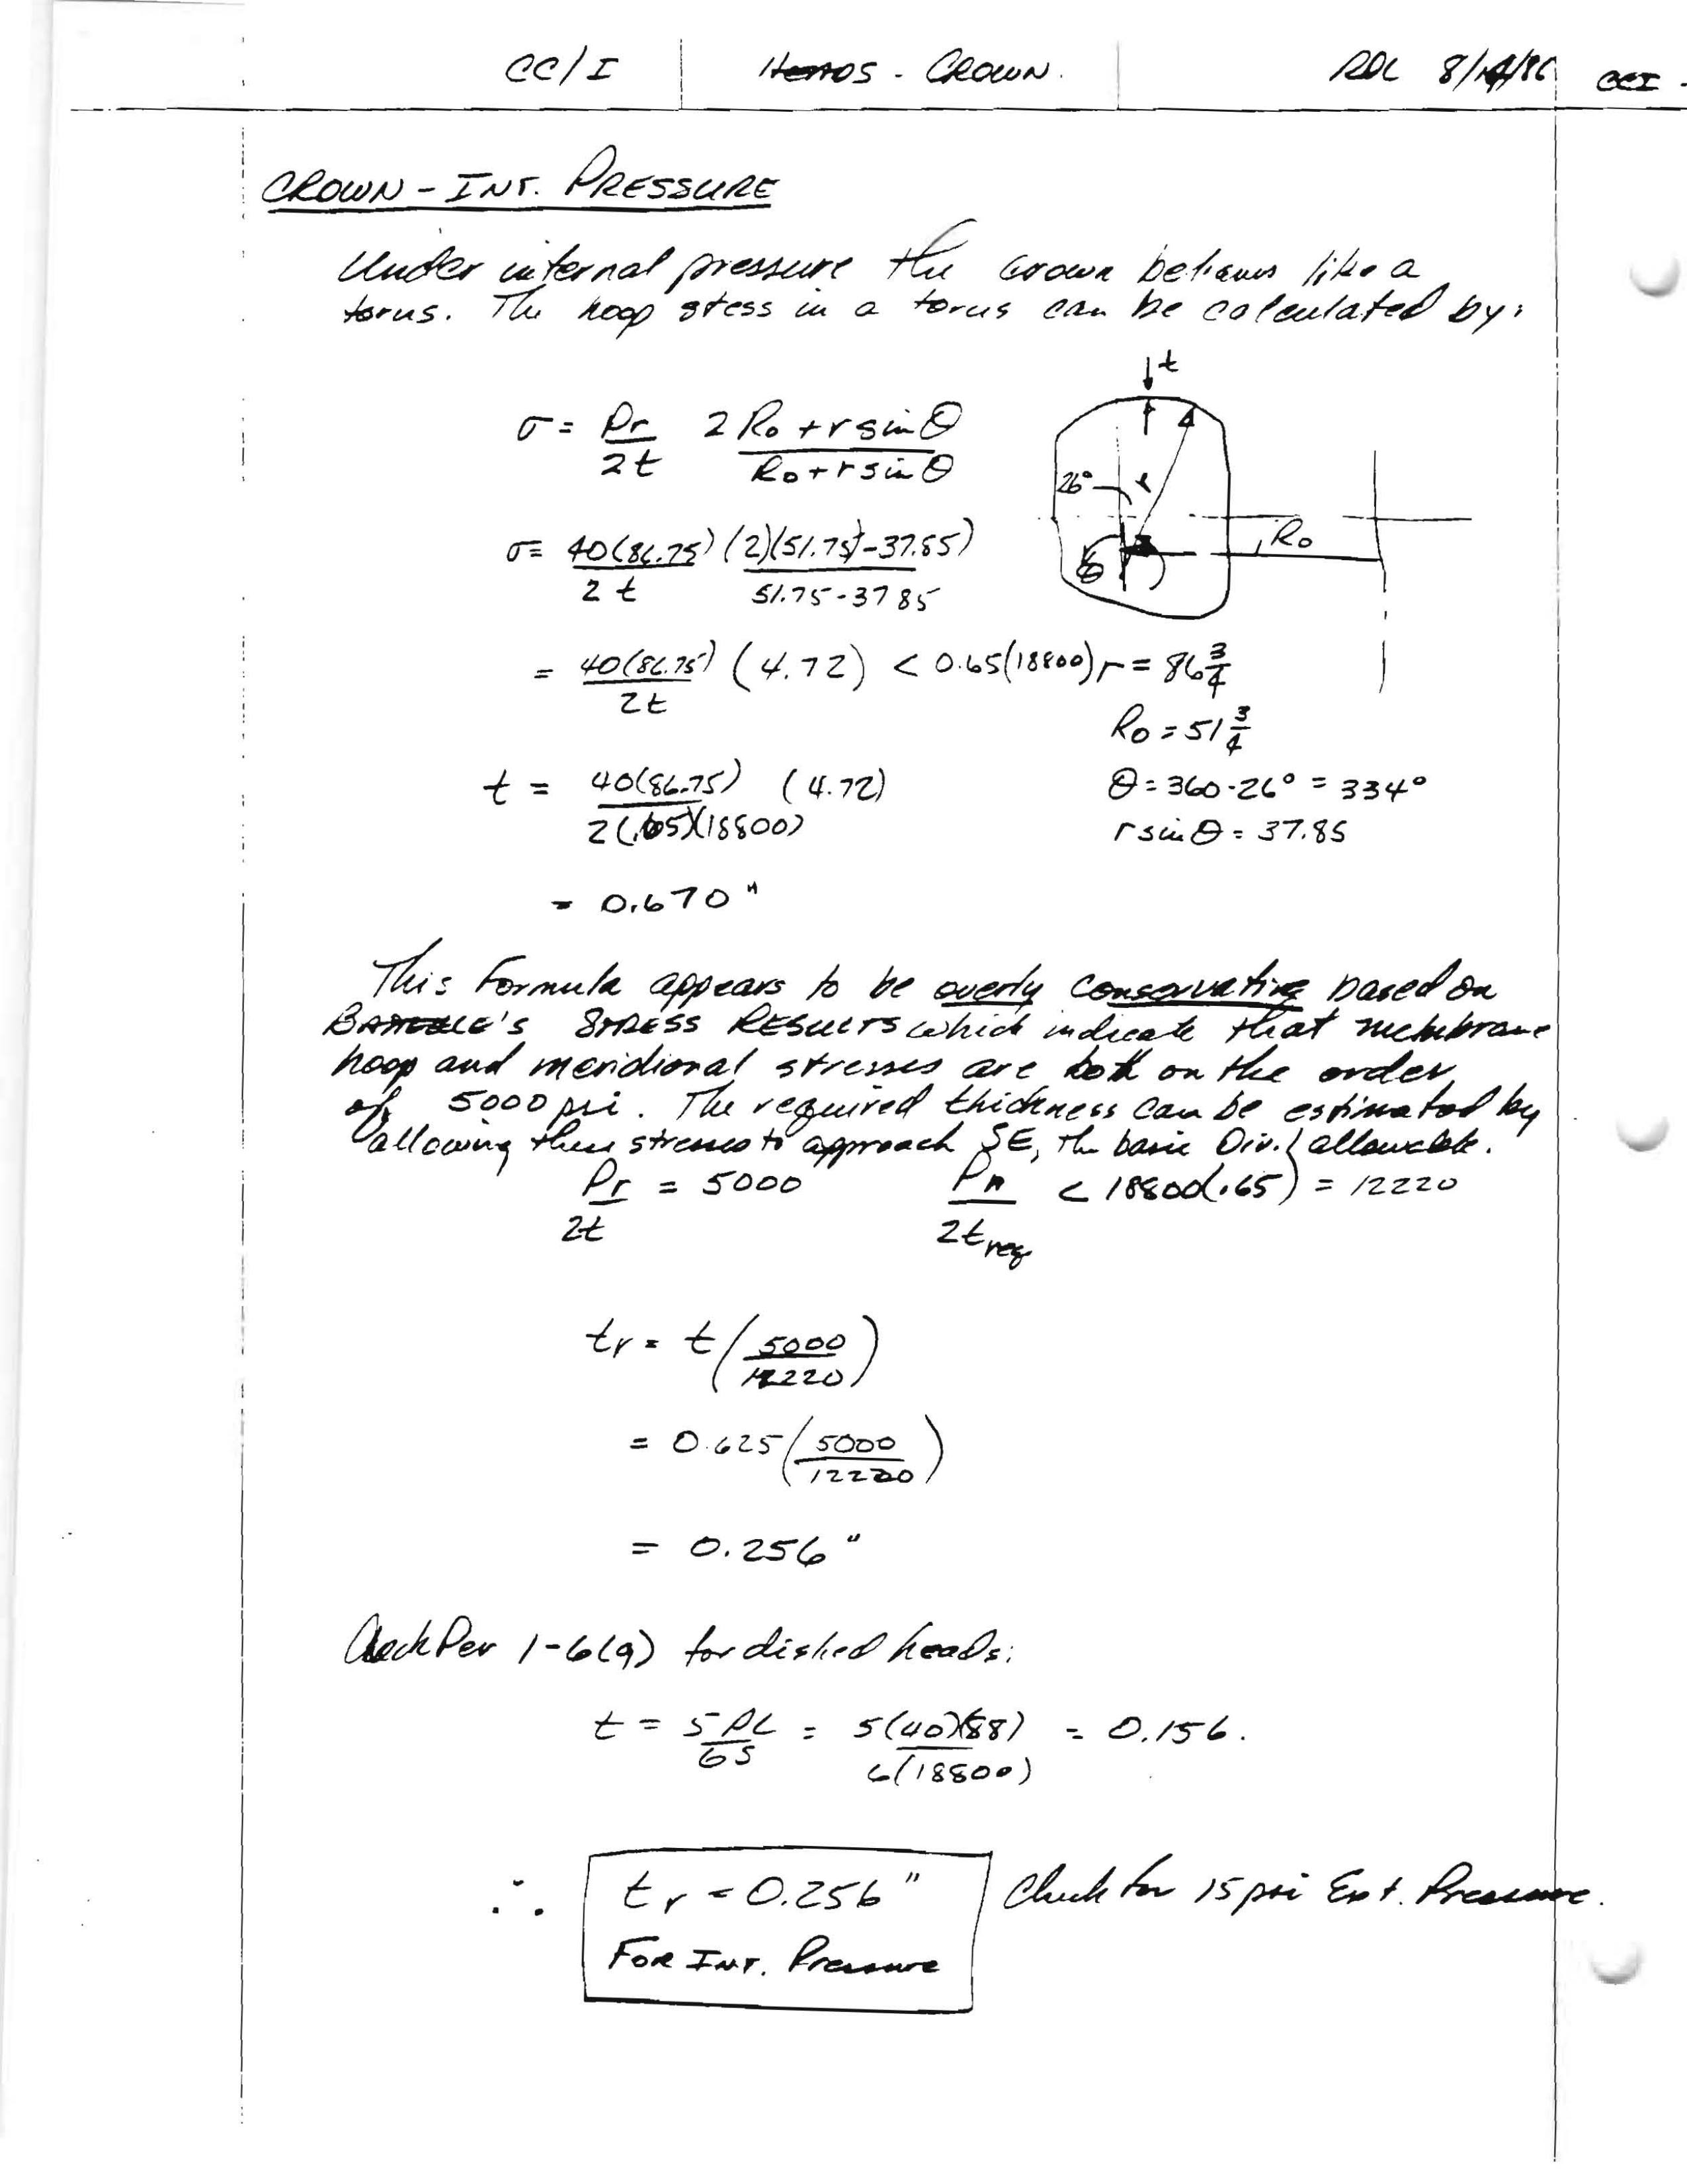 CC/I HEADS - CROWN. RDL 8/14/86 CCI -
CROWN - INT. PRESSURE
Under internal pressure the crown behaves like a
torus. The hoop stess in a torus can be calculated by:
t
σ = Pr/2t 2Ro + r sin θ / Ro + r sin θ
26° r
Ro
θ
σ = 40(86.75)/2t (2)(51.75)-37.85) / 51.75-37.85
= 40(86.75)/2t (4.72) < 0.65(18800) r = 86 3/4
Ro = 51 3/4
t = 40(86.75) (4.72) / 2(.65)(18800) θ = 360-26° = 334°
r sin θ = 37.85
= 0.670"
This formula appears to be overly conservative based on
STRESS RESULTS which indicate that membrane
hoop and meridional stresses are both on the order
of 5000 psi. The required thickness can be estimated by
allowing these stresses to approach SE, the basic Div. 1 allowable.
Pr/2t = 5000 Pr/2t req < 18800(.65) = 12220
tr = t (5000/12220)
= 0.625 (5000/12220)
= 0.256"
Check Per 1-6(g) for dished heads:
t = 5PL/6S = 5(40)(88)/6(18800) = 0.156.
∴ tr = 0.256" Check for 15 psi Ext. Pressure.
FOR INT. Pressure